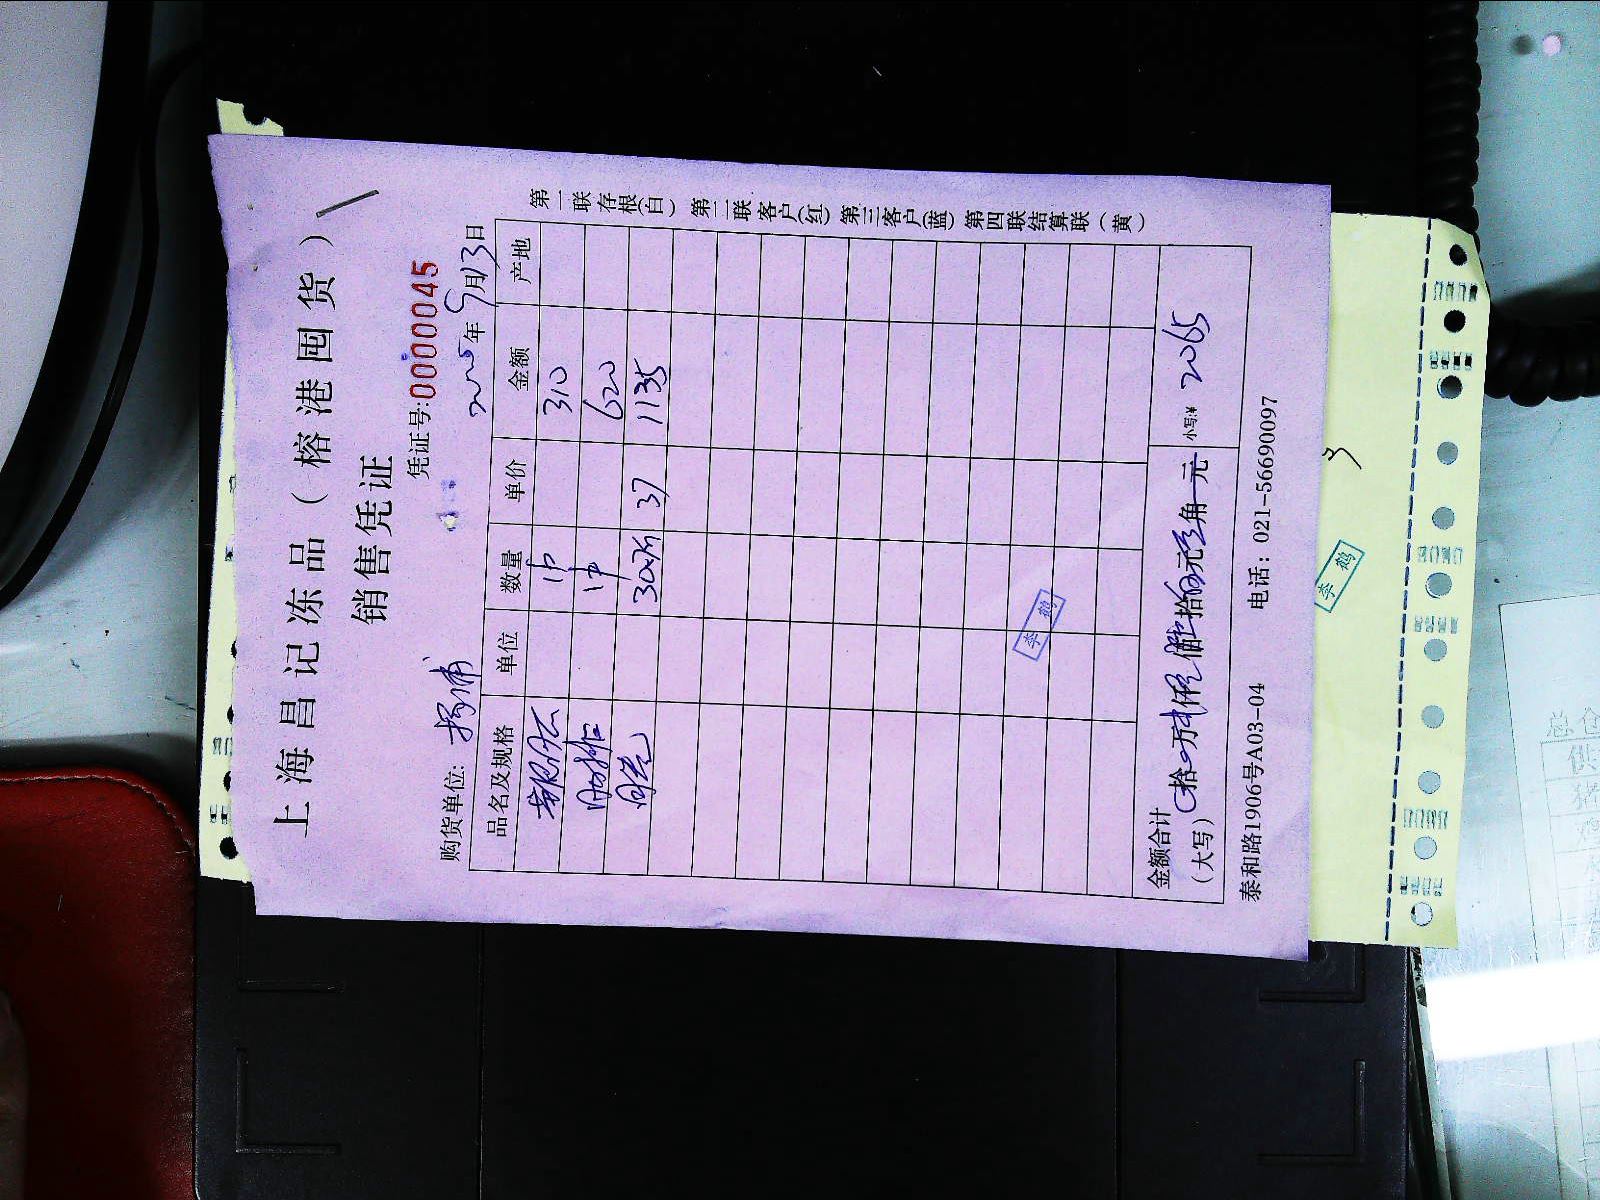 上海昌记冻品（榕港囤货）
销售凭证
凭证号:0000045
购货单位: 杨浦 2025年9月13日
品名及规格 单位 数量 单价 金额 产地
1件 310
1件 620
30.7斤 37 1135
金额合计
（大写） 拾 万 仟 佰 拾 元 角 元 小写:¥ 2065
泰和路1906号A03-04 电话: 021-56690097
第一联存根(白) 第二联客户(红) 第三客户(蓝) 第四联结算联(黄)
李鹤
李鹤